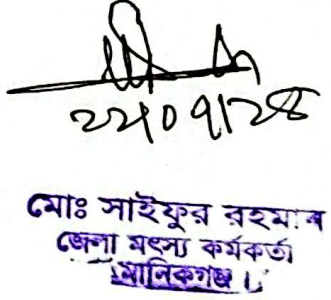 ২২/০৭/২৪
মোঃ সাইফুর রহমান
জেলা মৎস্য কর্মকর্তা
মানিকগঞ্জ।